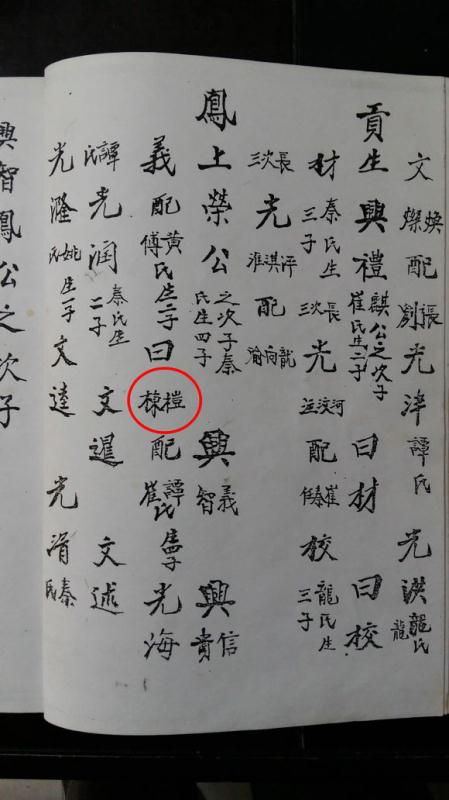 文煥燦配張劉光津譚氏光洪龍氏龍
貢生興禮麒公之次子崔氏生二子曰材曰校
材秦氏生三子長次三光河汶配崔秦任校龍氏生三子
長次三光泙淇淮配龍向喻
鳳上榮公之次子秦氏生四子興義智興信貴
義配黃傅氏生二子曰榿棟配譚崔氏生四子光海
譚氏光润秦氏生二子文暹文述
光姚氏生一子文逵光滑秦氏
興智鳳公之次子